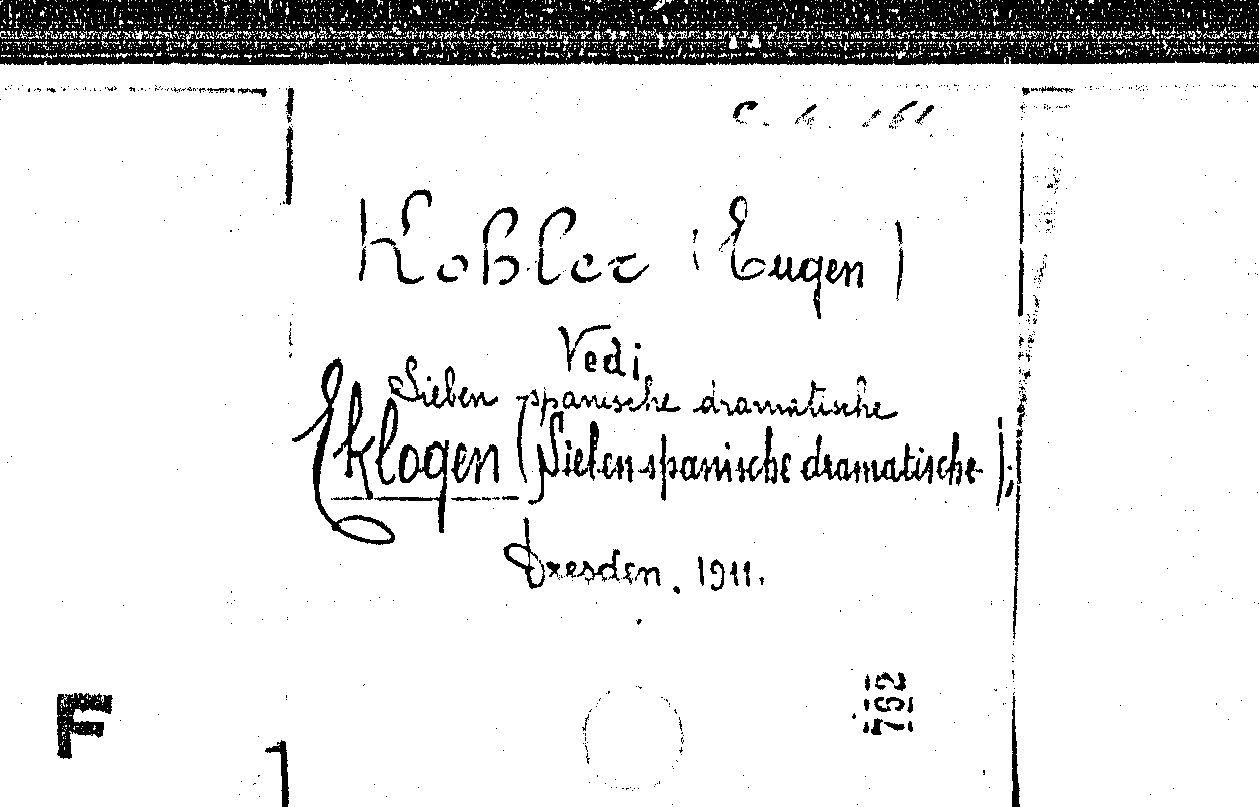 Kohler (Eugen)
Vedi
Sieben spanische dramatische
Eklogen (Sieben spanische dramatische);
Dresden. 1911.
F
762